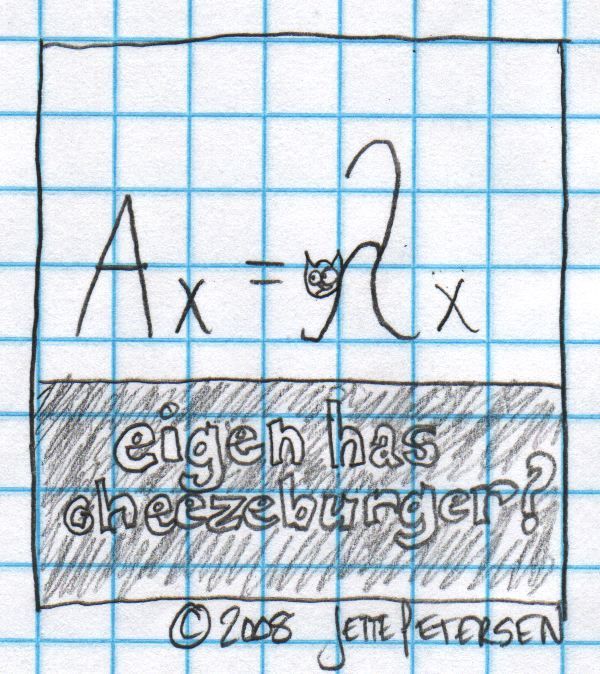 Ax = λx
eigen has
cheezeburger?
© 2008 Jette Petersen